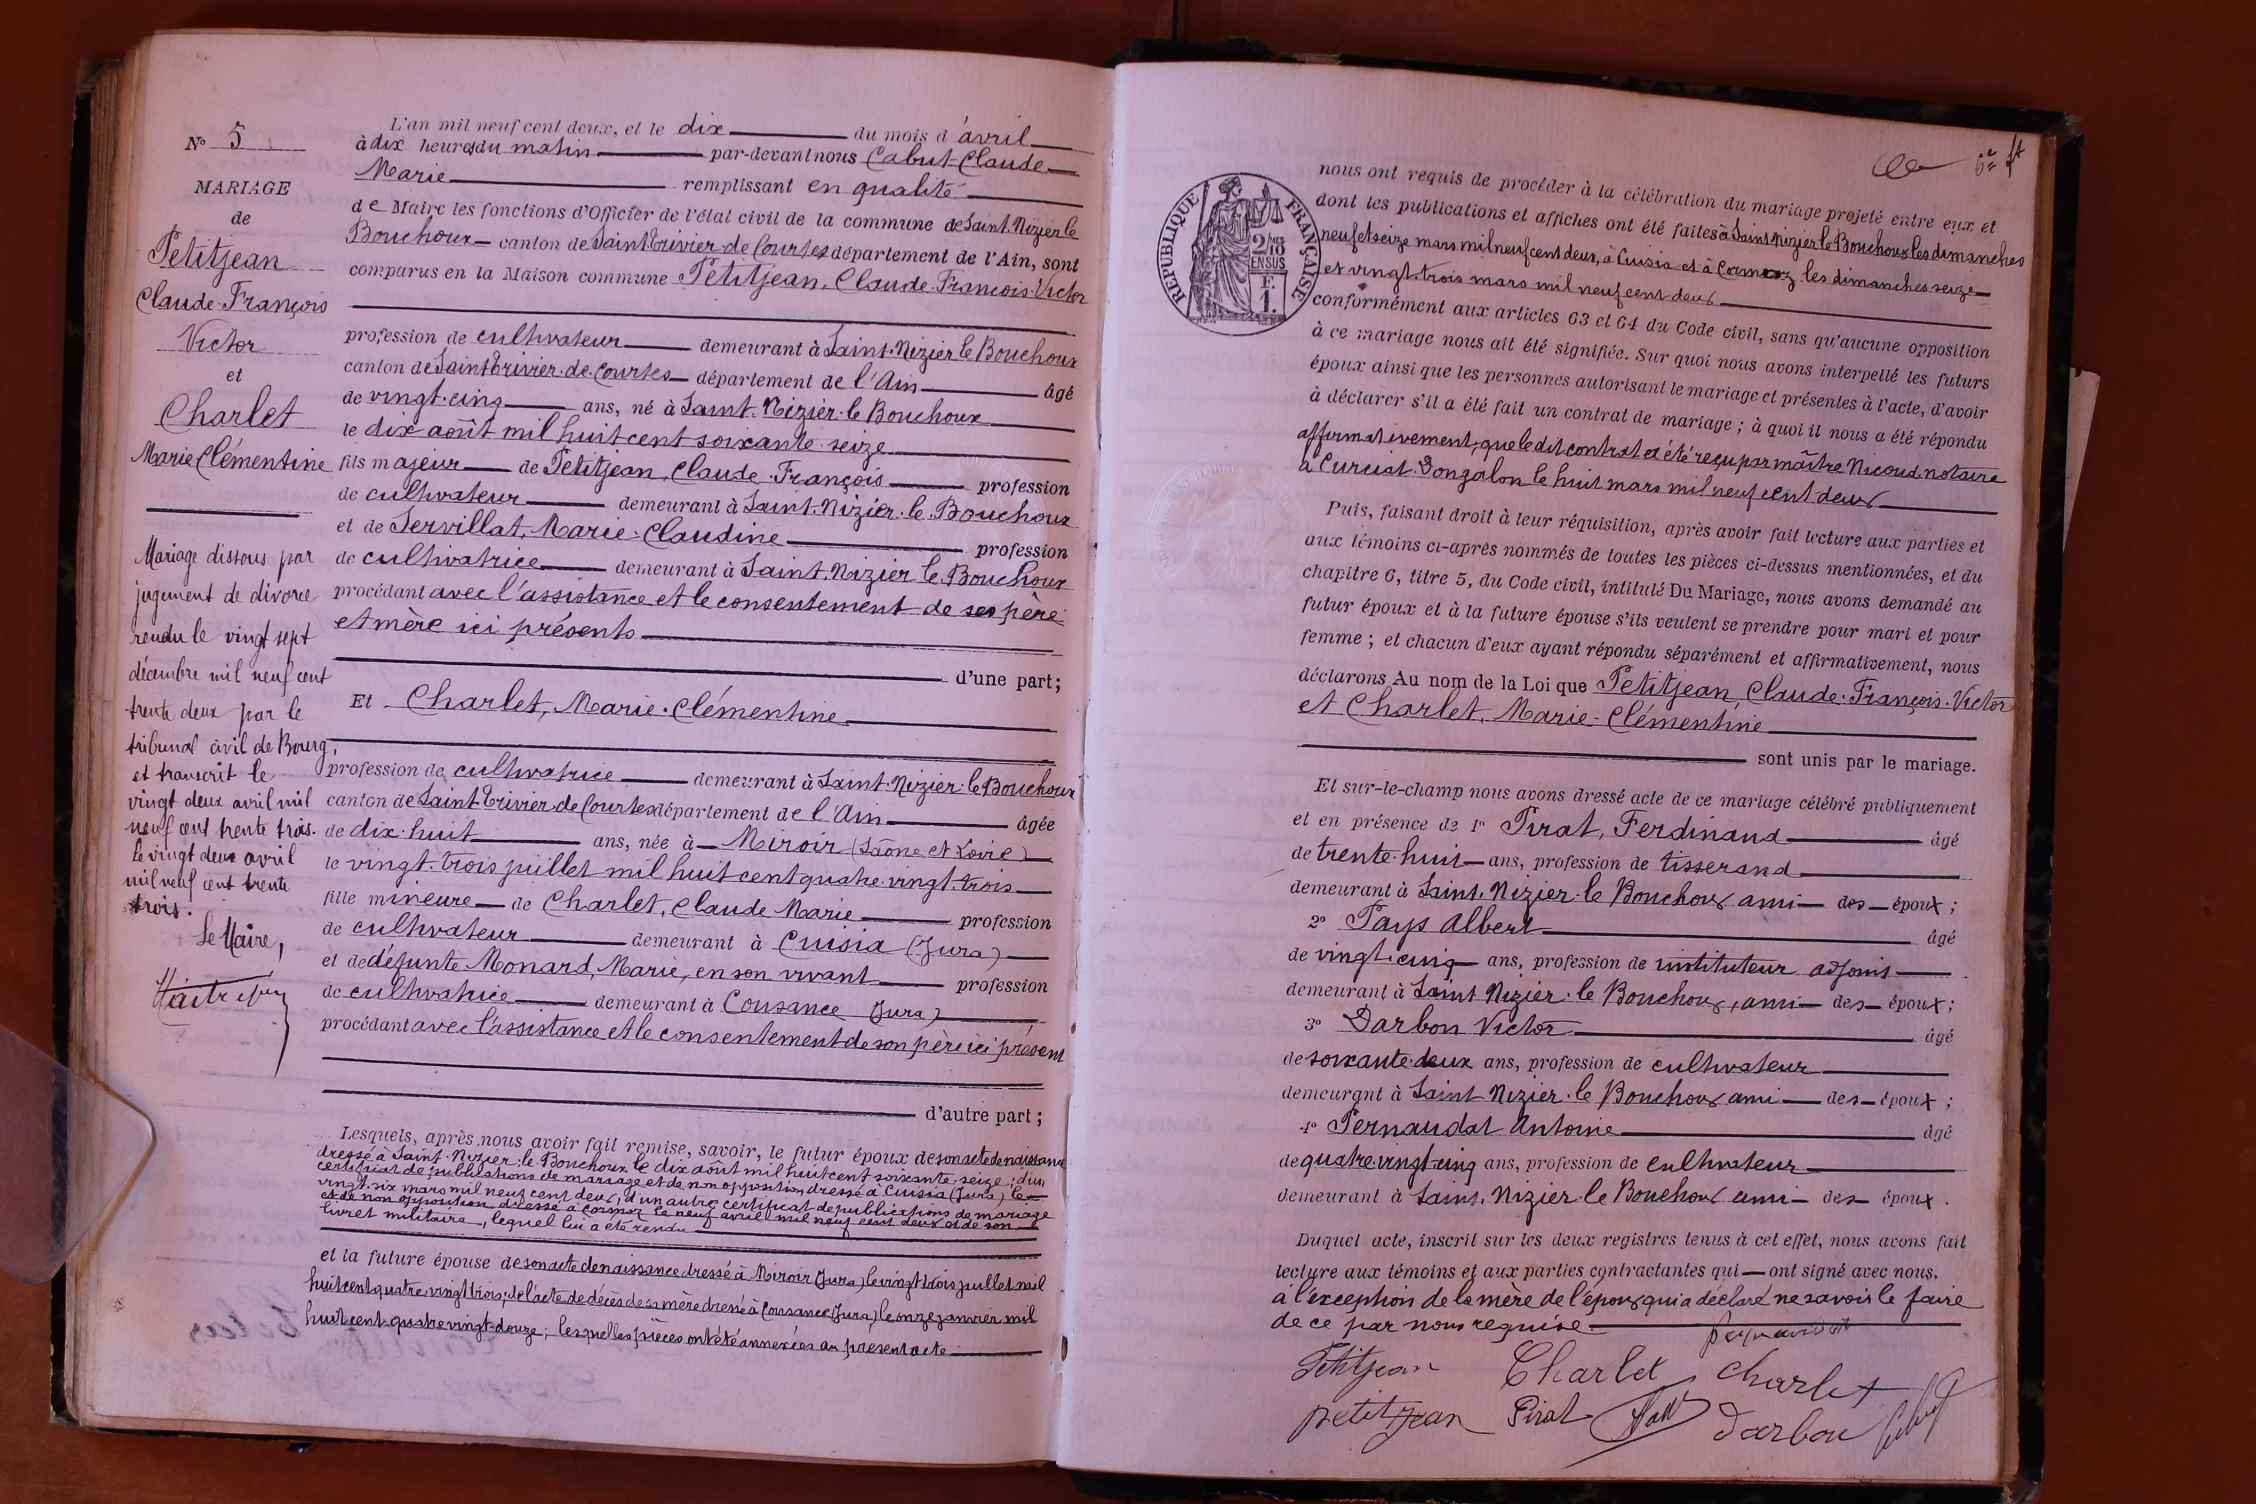 Nº 5
MARIAGE
de
Petitjean
Claude-François
Victor
et
Charlet
Marie Clémentine
Mariage dissous par
jugement de divorce
rendu le vingt sept
décembre mil neuf cent
trente deux par le
tribunal civil de Bourg,
et transcrit le
vingt deux avril mil
neuf cent trente trois.
le vingt deux avril
mil neuf cent trente
trois.
Le Maire,
L'an mil neuf cent deux, et le dix du mois d'avril
à dix heures du matin par-devant nous Cabut Claude
Marie remplissant en qualité
de Maire les fonctions d'Officier de l'état civil de la commune de Saint-Nizier le
Bouchoux canton de Saint-Trivier-de-Courtes département de l'Ain, sont
comparus en la Maison commune Petitjean, Claude-François-Victor
profession de cultivateur demeurant à Saint-Nizier le Bouchoux
canton de Saint-Trivier-de-Courtes département de l'Ain âgé
de vingt-cinq ans, né à Saint-Nizier-le Bouchoux
le dix août mil huit cent soixante-seize
fils majeur de Petitjean, Claude-François profession
de cultivateur demeurant à Saint-Nizier-le-Bouchoux
et de Servillat, Marie-Claudine profession
de cultivatrice demeurant à Saint-Nizier le Bouchoux
procédant avec l'assistance et le consentement de ses père
et mère ici présents
d'une part;
Et Charlet, Marie-Clémentine
profession de cultivatrice demeurant à Saint-Nizier-le Bouchoux
canton de Saint-Trivier-de-Courtes département de l'Ain âgée
de dix-huit ans, née à Miroir (Saône et Loire)
le vingt-trois juillet mil huit cent quatre-vingt-trois
fille mineure de Charlet, Claude Marie profession
de cultivateur demeurant à Cuisia (Jura)
et de défunte Monard, Marie, en son vivant profession
de cultivatrice demeurant à Cousance (Jura)
procédant avec l'assistance et le consentement de son père ici présent
d'autre part;
Lesquels, après nous avoir fait remise, savoir, le futur époux de son acte de naissance
dressé à Saint-Nizier-le-Bouchoux le dix août mil huit cent soixante-seize; d'un
certificat de publications de mariage et de non opposition dressé à Cuisia (Jura) le
vingt-six mars mil neuf cent deux, d'un autre certificat de publications de mariage
et de non opposition dressé à Cormoz le neuf avril mil neuf cent deux et de son
livret militaire, lequel lui a été rendu
et la future épouse de son acte de naissance dressé à Miroir (Jura) le vingt trois juillet mil
huit cent quatre vingt trois; de l'acte de décès de sa mère dressé à Cousance (Jura) le onze janvier mil
huit cent quatre vingt-douze; lesquelles pièces ont été annexées au présent acte
RÉPUBLIQUE FRANÇAISE
2/10
EN SUS
F.
1.
nous ont requis de procéder à la célébration du mariage projeté entre eux et
dont les publications et affiches ont été faites à Saint Nizier le Bouchoux les dimanches
neuf et seize mars mil neuf cent deux, à Cuisia et à Cormoz les dimanches seize
et vingt-trois mars mil neuf cent deux
conformément aux articles 63 et 64 du Code civil, sans qu'aucune opposition
à ce mariage nous ait été signifiée. Sur quoi nous avons interpellé les futurs
époux ainsi que les personnes autorisant le mariage et présentes à l'acte, d'avoir
à déclarer s'il a été fait un contrat de mariage; à quoi il nous a été répondu
affirmativement, que le dit contrat a été reçu par maître Nicoud notaire
à Curciat-Dongalon le huit mars mil neuf cent deux
Puis, faisant droit à leur réquisition, après avoir fait lecture aux parties et
aux témoins ci-après nommés de toutes les pièces ci-dessus mentionnées, et du
chapitre 6, titre 5, du Code civil, intitulé Du Mariage, nous avons demandé au
futur époux et à la future épouse s'ils veulent se prendre pour mari et pour
femme; et chacun d'eux ayant répondu séparément et affirmativement, nous
déclarons Au nom de la Loi que Petitjean, Claude-François-Victor
et Charlet, Marie-Clémentine
sont unis par le mariage.
Et sur-le-champ nous avons dressé acte de ce mariage célébré publiquement
et en présence de 1º Pirat, Ferdinand âgé
de trente-huit ans, profession de tisserand
demeurant à Saint-Nizier-le Bouchoux ami des époux;
2º Pays Albert âgé
de vingt-cinq ans, profession de instituteur adjoint
demeurant à Saint Nizier-le Bouchoux, ami des époux;
3º Darbon Victor âgé
de soixante-deux ans, profession de cultivateur
demeurant à Saint Nizier-le Bouchoux ami des époux;
4º Pernaudat Antoine âgé
de quatre-vingt-cinq ans, profession de cultivateur
demeurant à Saint-Nizier-le Bouchoux ami des époux.
Duquel acte, inscrit sur les deux registres tenus à cet effet, nous avons fait
lecture aux témoins et aux parties contractantes qui ont signé avec nous.
à l'exception de la mère de l'époux qui a déclaré ne savoir le faire
de ce par nous requise.
Petitjean Charlet charlet
petitjean Pirat Darbon